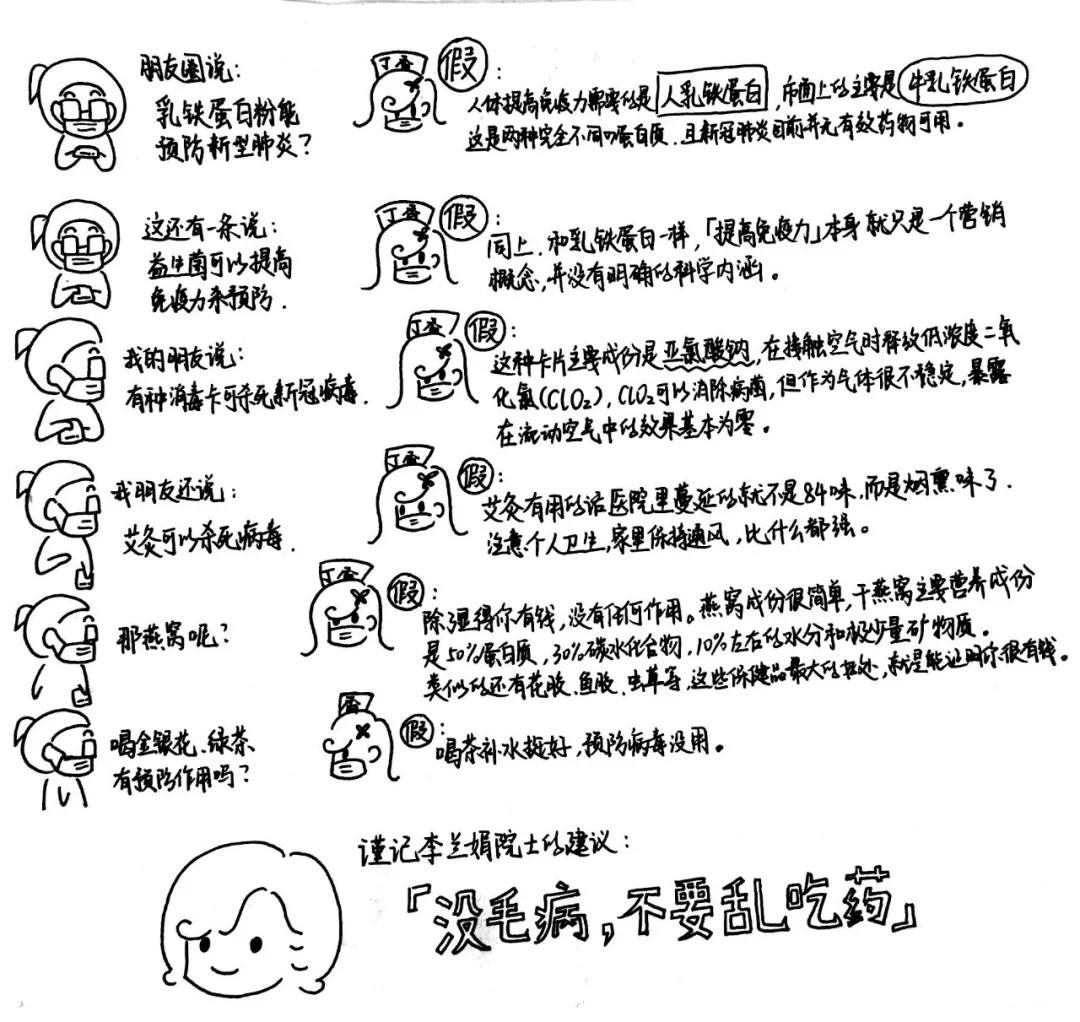 朋友圈说：
乳铁蛋白粉能
预防新型肺炎？
丁香
假：
人体提高免疫力需要的是人乳铁蛋白，市面上的主要是牛乳铁蛋白
这是两种完全不同的蛋白质．且新冠肺炎目前并无有效药物可用。
这还有一条说：
益生菌可以提高
免疫力来预防．
丁香
假：
同上．和乳铁蛋白一样，「提高免疫力」本身就只是一个营销
概念，并没有明确的科学内涵。
我的朋友说：
有种消毒卡可杀死新冠病毒．
丁香
假：
这种卡片主要成份是亚氯酸钠，在接触空气时释放低浓度二氧
化氯(ClO₂)，ClO₂可以消除病菌，但作为气体很不稳定，暴露
在流动空气中的效果基本为零。
我朋友还说：
艾灸可以杀死病毒．
丁香
假：
艾灸有用的话医院里蔓延的就不是84味，而是烟熏味了．
注意个人卫生，家里保持通风，比什么都强。
那燕窝呢？
丁香
假：
除显得你有钱，没有任何作用。燕窝成份很简单，干燕窝主要营养成份
是50%蛋白质，30%碳水化合物，10%左右的水分和极少量矿物质。
类似的还有花胶、鱼胶、虫草等，这些保健品最大的用处，就是能证明你很有钱。
喝金银花、绿茶
有预防作用吗？
香
假：
喝茶补水挺好，预防病毒没用。
谨记李兰娟院士的建议：
「没毛病，不要乱吃药」